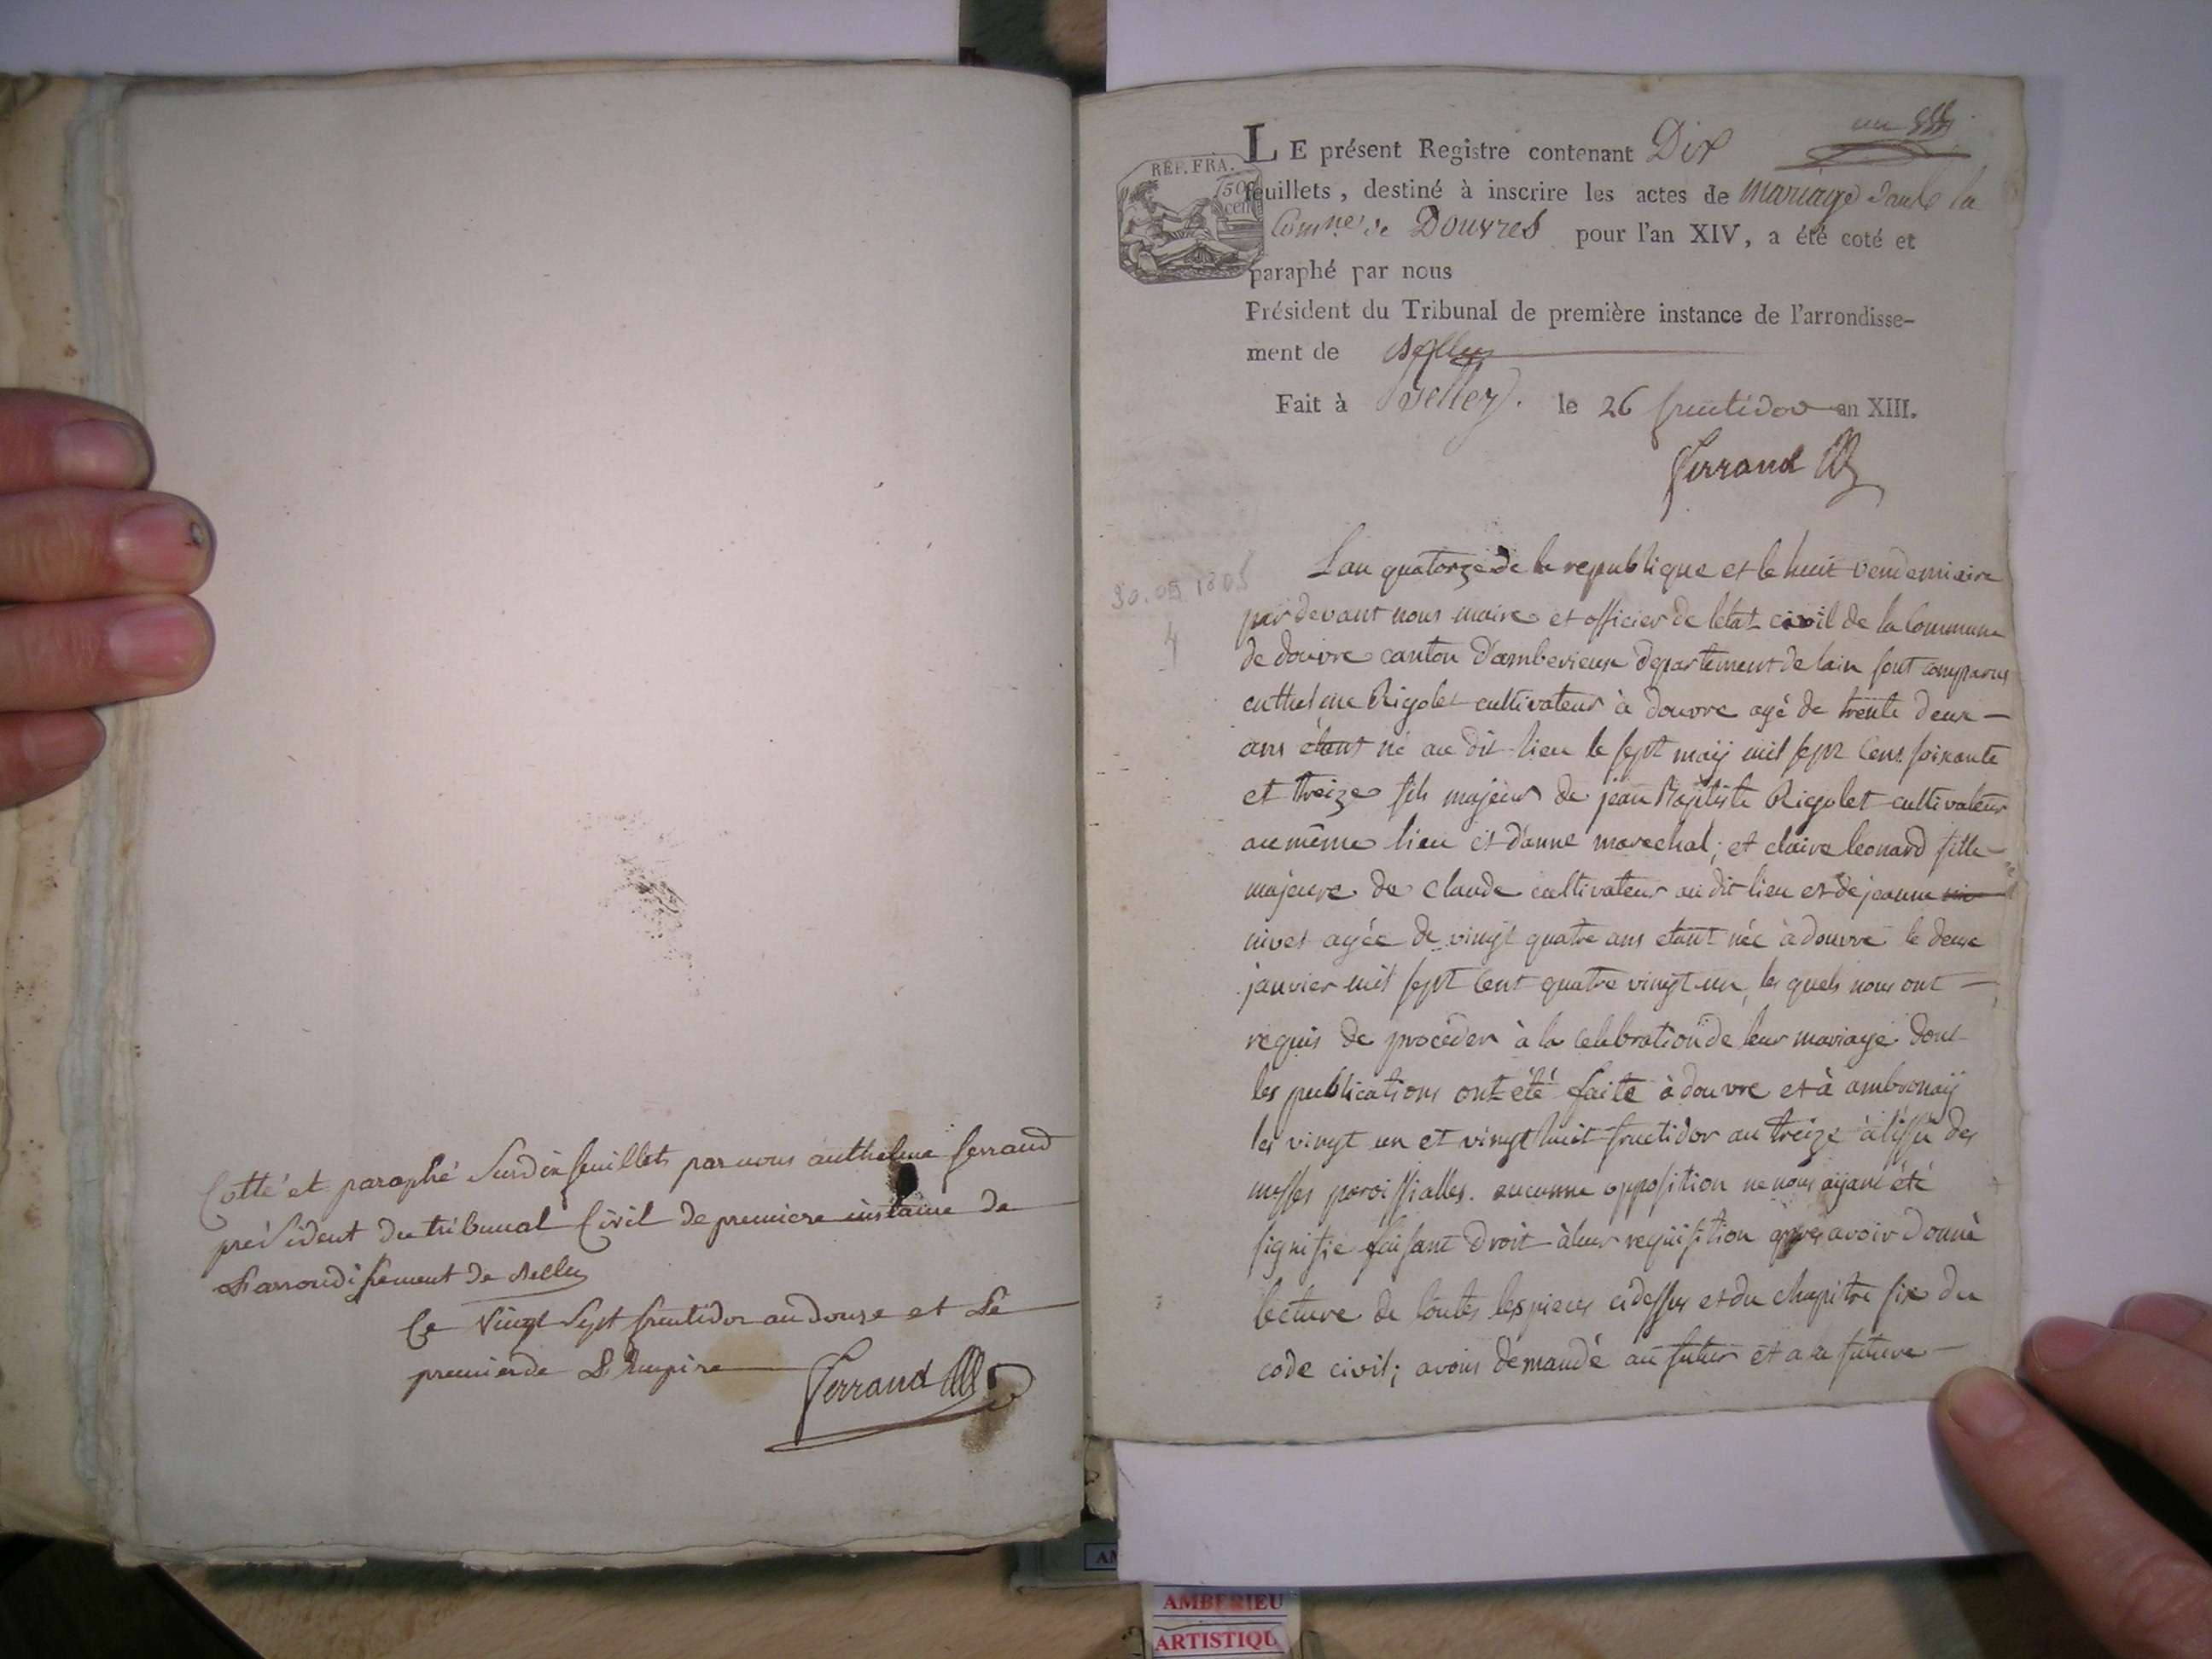 Cotté et paraphé Sur dix feuillets par nous anthelme ferrand
président du tribunal Civil de premiere instance de
L'arrondissement de Belley
Ce vingt Sept fructidor an douze et Le
premier de L'Empire
Ferrand
un
REP. FRA.
50
cent
LE présent Registre contenant Dix
feuillets, destiné à inscrire les actes de mariage dans la
Comne de Douvres pour l'an XIV, a été coté et
paraphé par nous
Président du Tribunal de première instance de l'arrondisse-
ment de Belley
Fait à Belley. le 26 fructidor an XIII.
Ferrand
30.09.1805
4
L'an quatorze de la republique et le huit vendemiaire
par devant nous maire et officier de letat civil de la Commune
de douvre canton d'amberieux departement de lain sont comparus
enthelme Rigolet cultivateur à douvre agé de trente deux —
ans étant né au dit lieu le sept maÿ mil sept Cent soixante
et treize fils majeur de jean Baptiste Rigolet cultivateur
au même lieu et d'anne marechal; et claire leonard fille
majeure de Claude cultivateur au dit lieu et de jeanne
nivet agée de vingt quatre ans etant née à douvre le deux
janvier mil sept Cent quatre vingt un, les quels nous ont —
requis de procéder à la celebration de leur mariage dont
les publications ont été faite à douvre et à ambronaÿ
les vingt un et vingt huit fructidor an treize à l'issue des
messes paroissialles. aucunne opposition ne nous aÿant été
signifie faisant droit à leur requisition apres avoir donné
lecture de toutes les pieces cidessus et du chapitre six du
code civil; avons demandé au futur et a la future —
AMBERIEU
ARTISTIQU